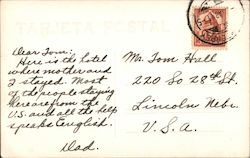 TARJETA POSTAL
Dear Tom:
Here is the hotel
where mother and
I stayed. Most
of the people staying
here are from the
U.S. and all the help
speaks English.
Dad.
Mr. Tom Hall
220 So 28th St.
Lincoln Nebr.
U.S.A.